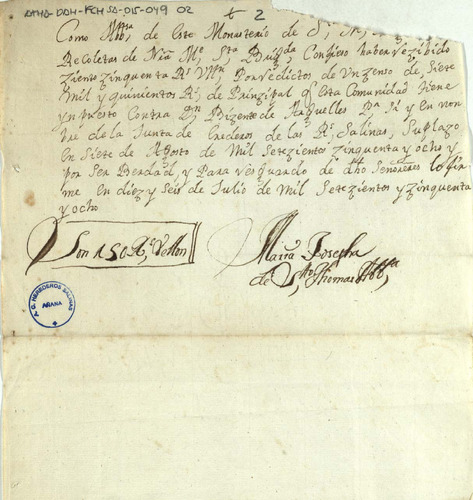 ATHA-DAH-FCHSA-015-049 02
2
Como Abb.sa de Este Monasterio de S.n
Recoletas de N.ra M.e S.ta Brig.da, Confieso haber rezibido
Ziento zinquenta R.s V.on, Por reditos de Un Zenso de, Siete
Mil y quinientos R.s, de Prinzipal q.e Esta Comunidad tiene
Ynpuesto Contra D.n Bizente de Arguelles P.a Si y En non
bre de la Junta de Erederos de las R.s Salinas, Su plazo
En Siete de Agosto de Mil Setezientos Zinquenta y ocho y
por Ser Berdad, y Para resguardo de dho Senoreres lo fir
me En diez y Seis de Julio de Mil Setezientos y zinquenta
y ocho
Son 150 R.s Vellon
Maria Josepha
de S.to Thomas Abb.sa
A. G. HEREDEROS SALINAS
AÑANA